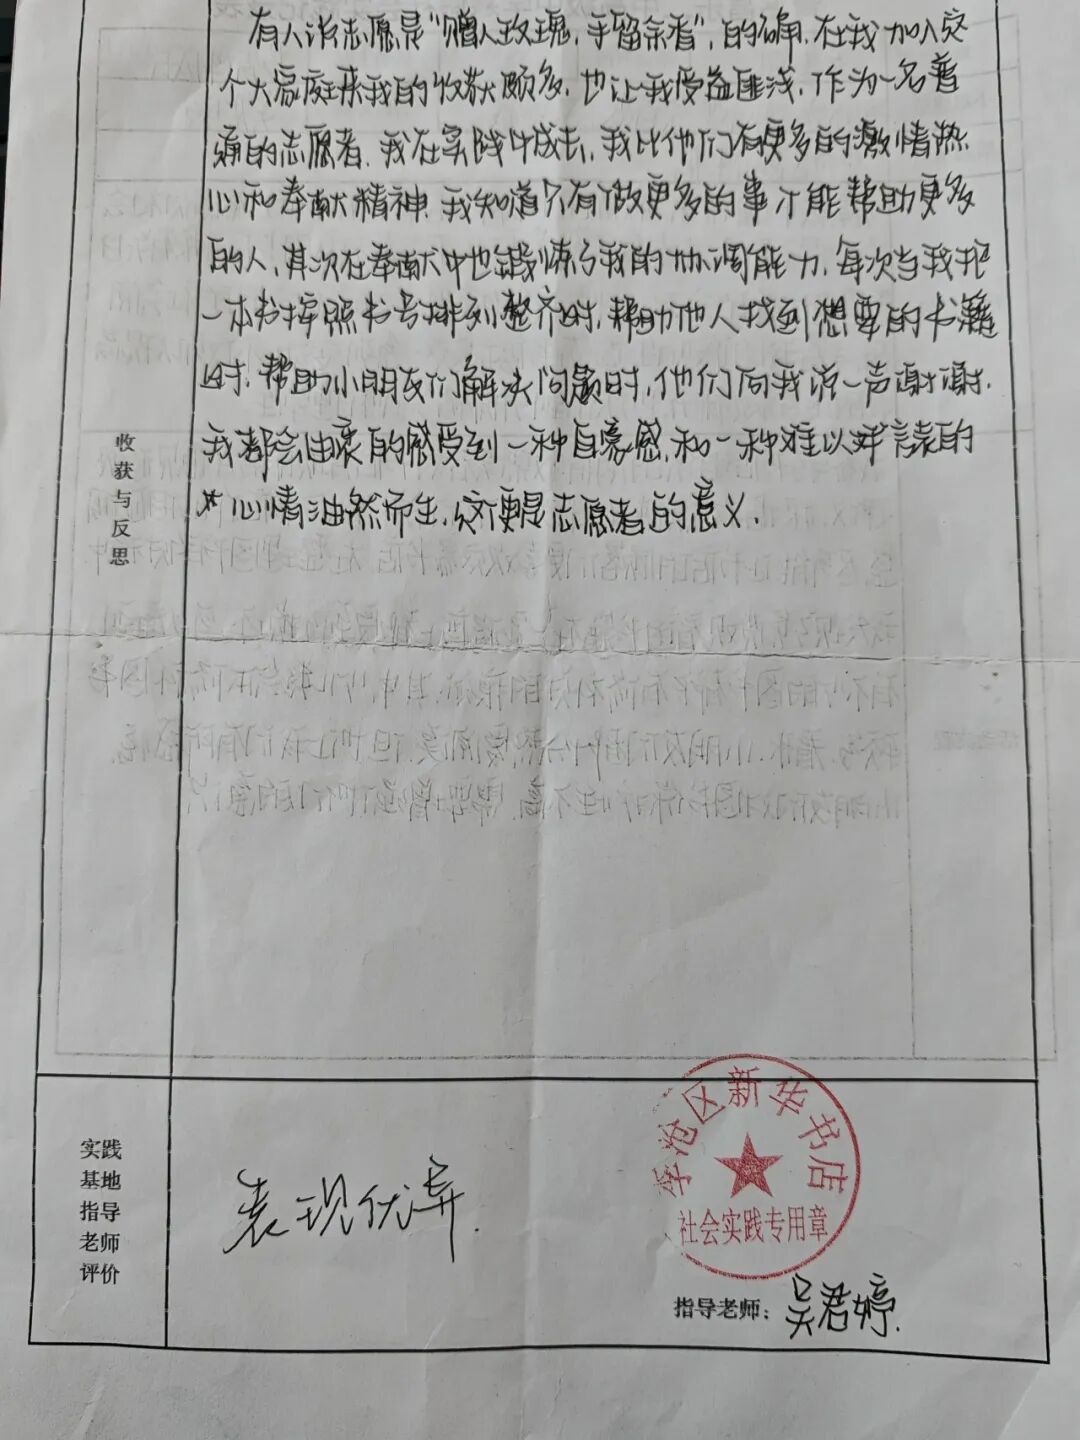 有人说志愿是“赠人玫瑰，手留余香”，的确，在我加入这
个大家庭来我的收获颇多，也让我受益匪浅，作为一名普
通的志愿者，我在实践中成长，我比他们有更多的激情热
心和奉献精神，我知道只有做更多的事才能帮助更多
的人，其次在奉献中也锻炼了我的协调能力，每次当我把
一本书按照书号排列整齐时，帮助他人找到想要的书籍
时，帮助小朋友们解决问题时，他们向我说一声谢谢，
我都会由衷的感受到一种自豪感，和一种难以言表的
心情油然而生，这便是志愿者的意义．
收获与反思
实践
基地
指导
老师
评价
表现优异．
李沧区新华书店
社会实践专用章
指导老师：吴君婷．